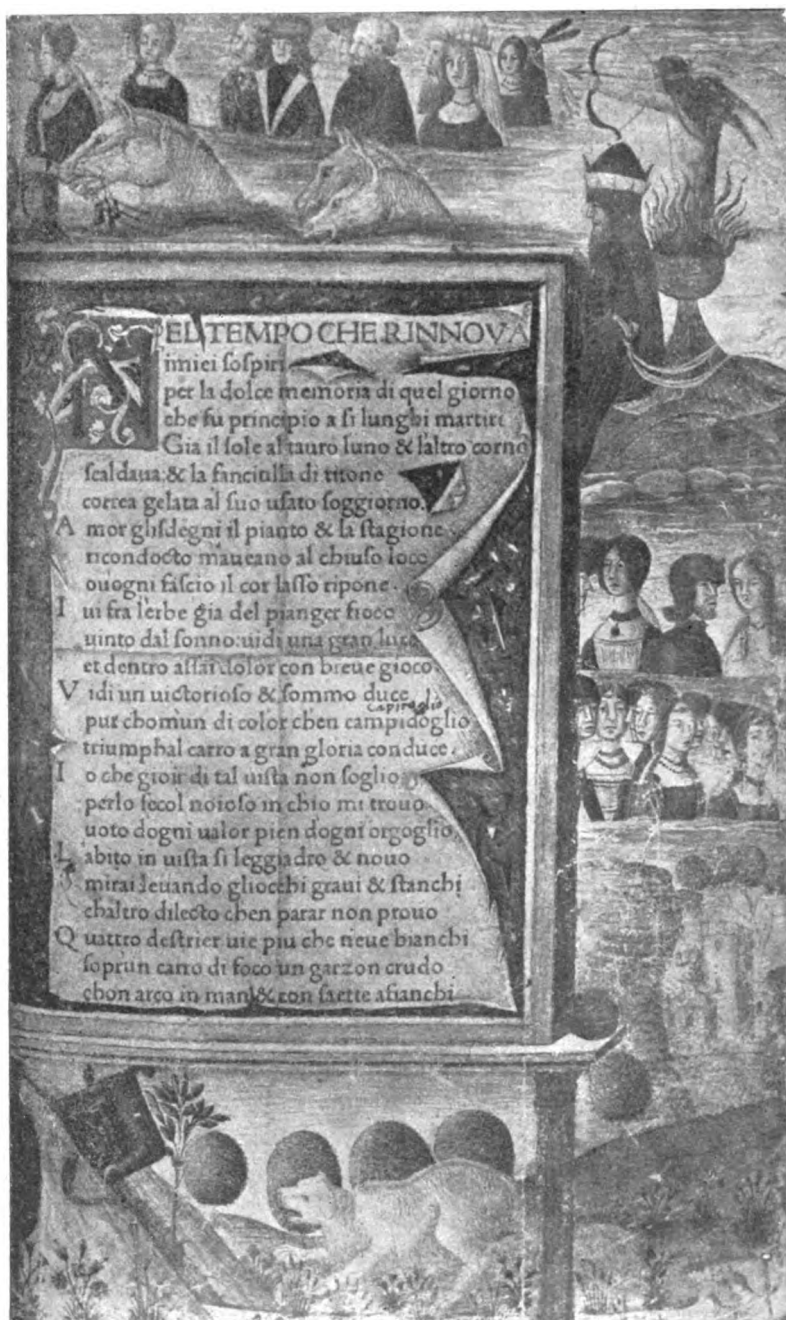 NEL TEMPO CHE RINNOVA
imiei sospiri
per la dolce memoria di quel giorno
che fu principio a si lunghi martiri
Gia il sole al tauro luno & laltro corno
scaldaua: & la fanciulla di titone
correa gelata al suo usato soggiorno.
Amor glisdegni il pianto & la stagione
ricondocto maueano al chiuso loco
ouogni fascio il cor lasso ripone.
Iui fra lerbe gia del pianger fioco
uinto dal sonno: uidi una gran luce
et dentro assai dolor con breue gioco
Vidi un uictorioso & sommo duce
capitoglio
pur chomun di color chen campidoglio
triumphal carro a gran gloria conduce.
Io che gioir di tal uista non soglio
perlo secol noioso in chio mi trouo
uoto dogni ualor pien dogni orgoglio
Labito in uista si leggiadro & nouo
mirai leuando gliocchi graui & stanchi
chaltro dilecto chen parar non prouo
Quattro destrier uie piu che neue bianchi
soprun carro di foco un garzon crudo
chon arco in man & con saette afianchi